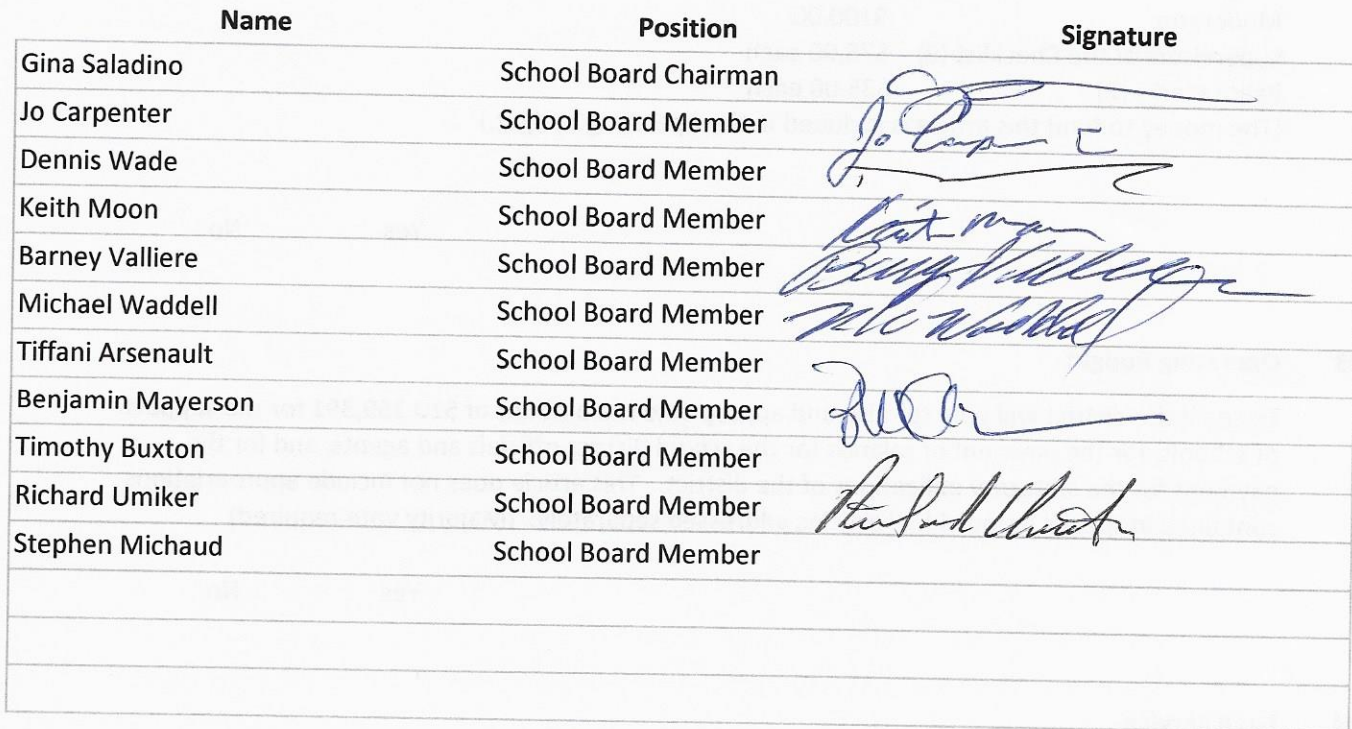 Name Position Signature
Gina Saladino School Board Chairman
Jo Carpenter School Board Member Jo Carpenter
Dennis Wade School Board Member
Keith Moon School Board Member Keith Moon
Barney Valliere School Board Member Barney Valliere
Michael Waddell School Board Member Waddell
Tiffani Arsenault School Board Member
Benjamin Mayerson School Board Member
Timothy Buxton School Board Member
Richard Umiker School Board Member Richard Umiker
Stephen Michaud School Board Member